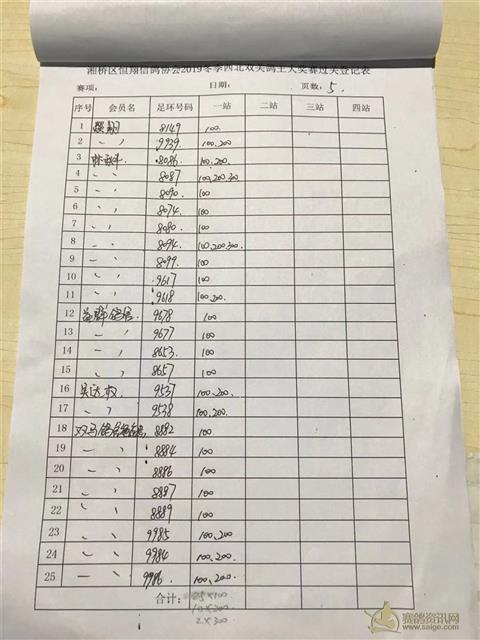 湘桥区恒翔信鸽协会2019冬季西北双关鸽王大奖赛过关登记表
赛项： 日期： 页数：5.
序号 会员名 足环号码 一站 二站 三站 四站
1 翔 8149 100.
2 〃 9939. 100.200
3 林 8086 100,200.
4 〃 8087 100,200,300
5 〃 8090. 100
6 〃 8074. 100
7 〃 8080. 100
8 〃 8094. 100,200,300.
9 〃 8099. 100
10 〃 9617 100
11 〃 9618 100,200.
12 鸽舍 9678 100
13 〃 9677 100
14 〃 8653 100
15 〃 8657 100
16 吴达权 9537 100,200.
17 〃 9538 100,200.
18 双马鸽舍 8882 100.
19 〃 8884 100
20 〃 8886 100
21 〃 8887 100
22 〃 8889 100
23 〃 9985 100,200
24 〃 9984 100,200.
25 〃 9986. 100,200.
合计： 25×100
10×200
2×300
赛鸽资讯网
www.saige.com